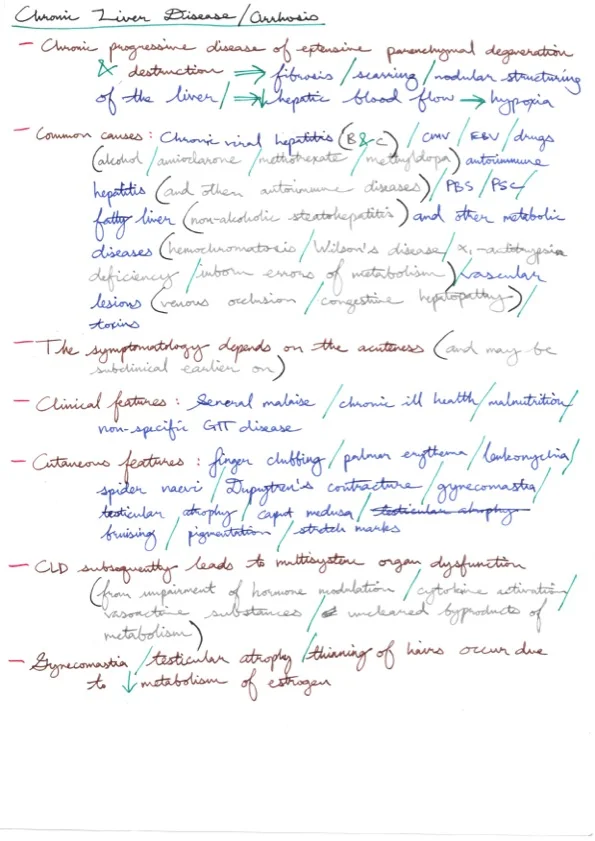 Chronic Liver Disease/Cirrhosis
– Chronic progressive disease of extensive parenchymal degeneration
& destruction ⇒ fibrosis/scarring/nodular structuring
of the liver/⇒↓hepatic blood flow → hypoxia
– Common causes: Chronic viral hepatitis (B&C)/CMV/EBV/drugs
(alcohol/amiodarone/methotrexate/methyldopa) autoimmune
hepatitis (and other autoimmune diseases)/PBS/PSC/
fatty liver (non-alcoholic steatohepatitis) and other metabolic
diseases (hemochromatosis/Wilson's disease/α1-antitrypsin
deficiency/inborn errors of metabolism)/vascular
lesions (venous occlusion/congestive hepatopathy)/
toxins
– The symptomatology depends on the acuteness (and may be
subclinical earlier on)
– Clinical features: General malaise/chronic ill health/malnutrition/
non-specific GIT disease
– Cutaneous features: finger clubbing/palmar erythema/leukonychia/
spider naevi/Dupuytren's contracture/gynecomastia/
testicular atrophy/caput medusa/testicular atrophy
bruising/pigmentation/stretch marks
– CLD subsequently leads to multisystem organ dysfunction
(from impairment of hormone modulation/cytokine activation/
vasoactive substances/uncleared byproducts of
metabolism)
– Gynecomastia/testicular atrophy/thinning of hairs occur due
to ↓metabolism of estrogen